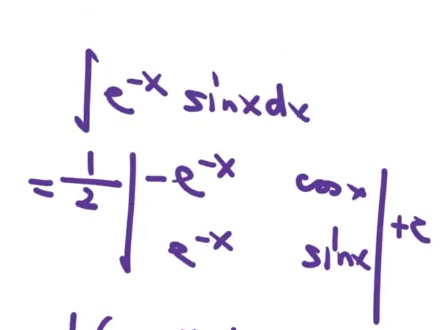 ∫ e^-x sinx dx
= 1/2 | -e^-x cosx
e^-x sinx | +c